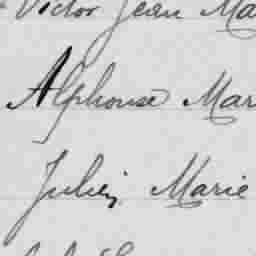 Victor Jean Ma
Alphonse Mar
Julien Marie